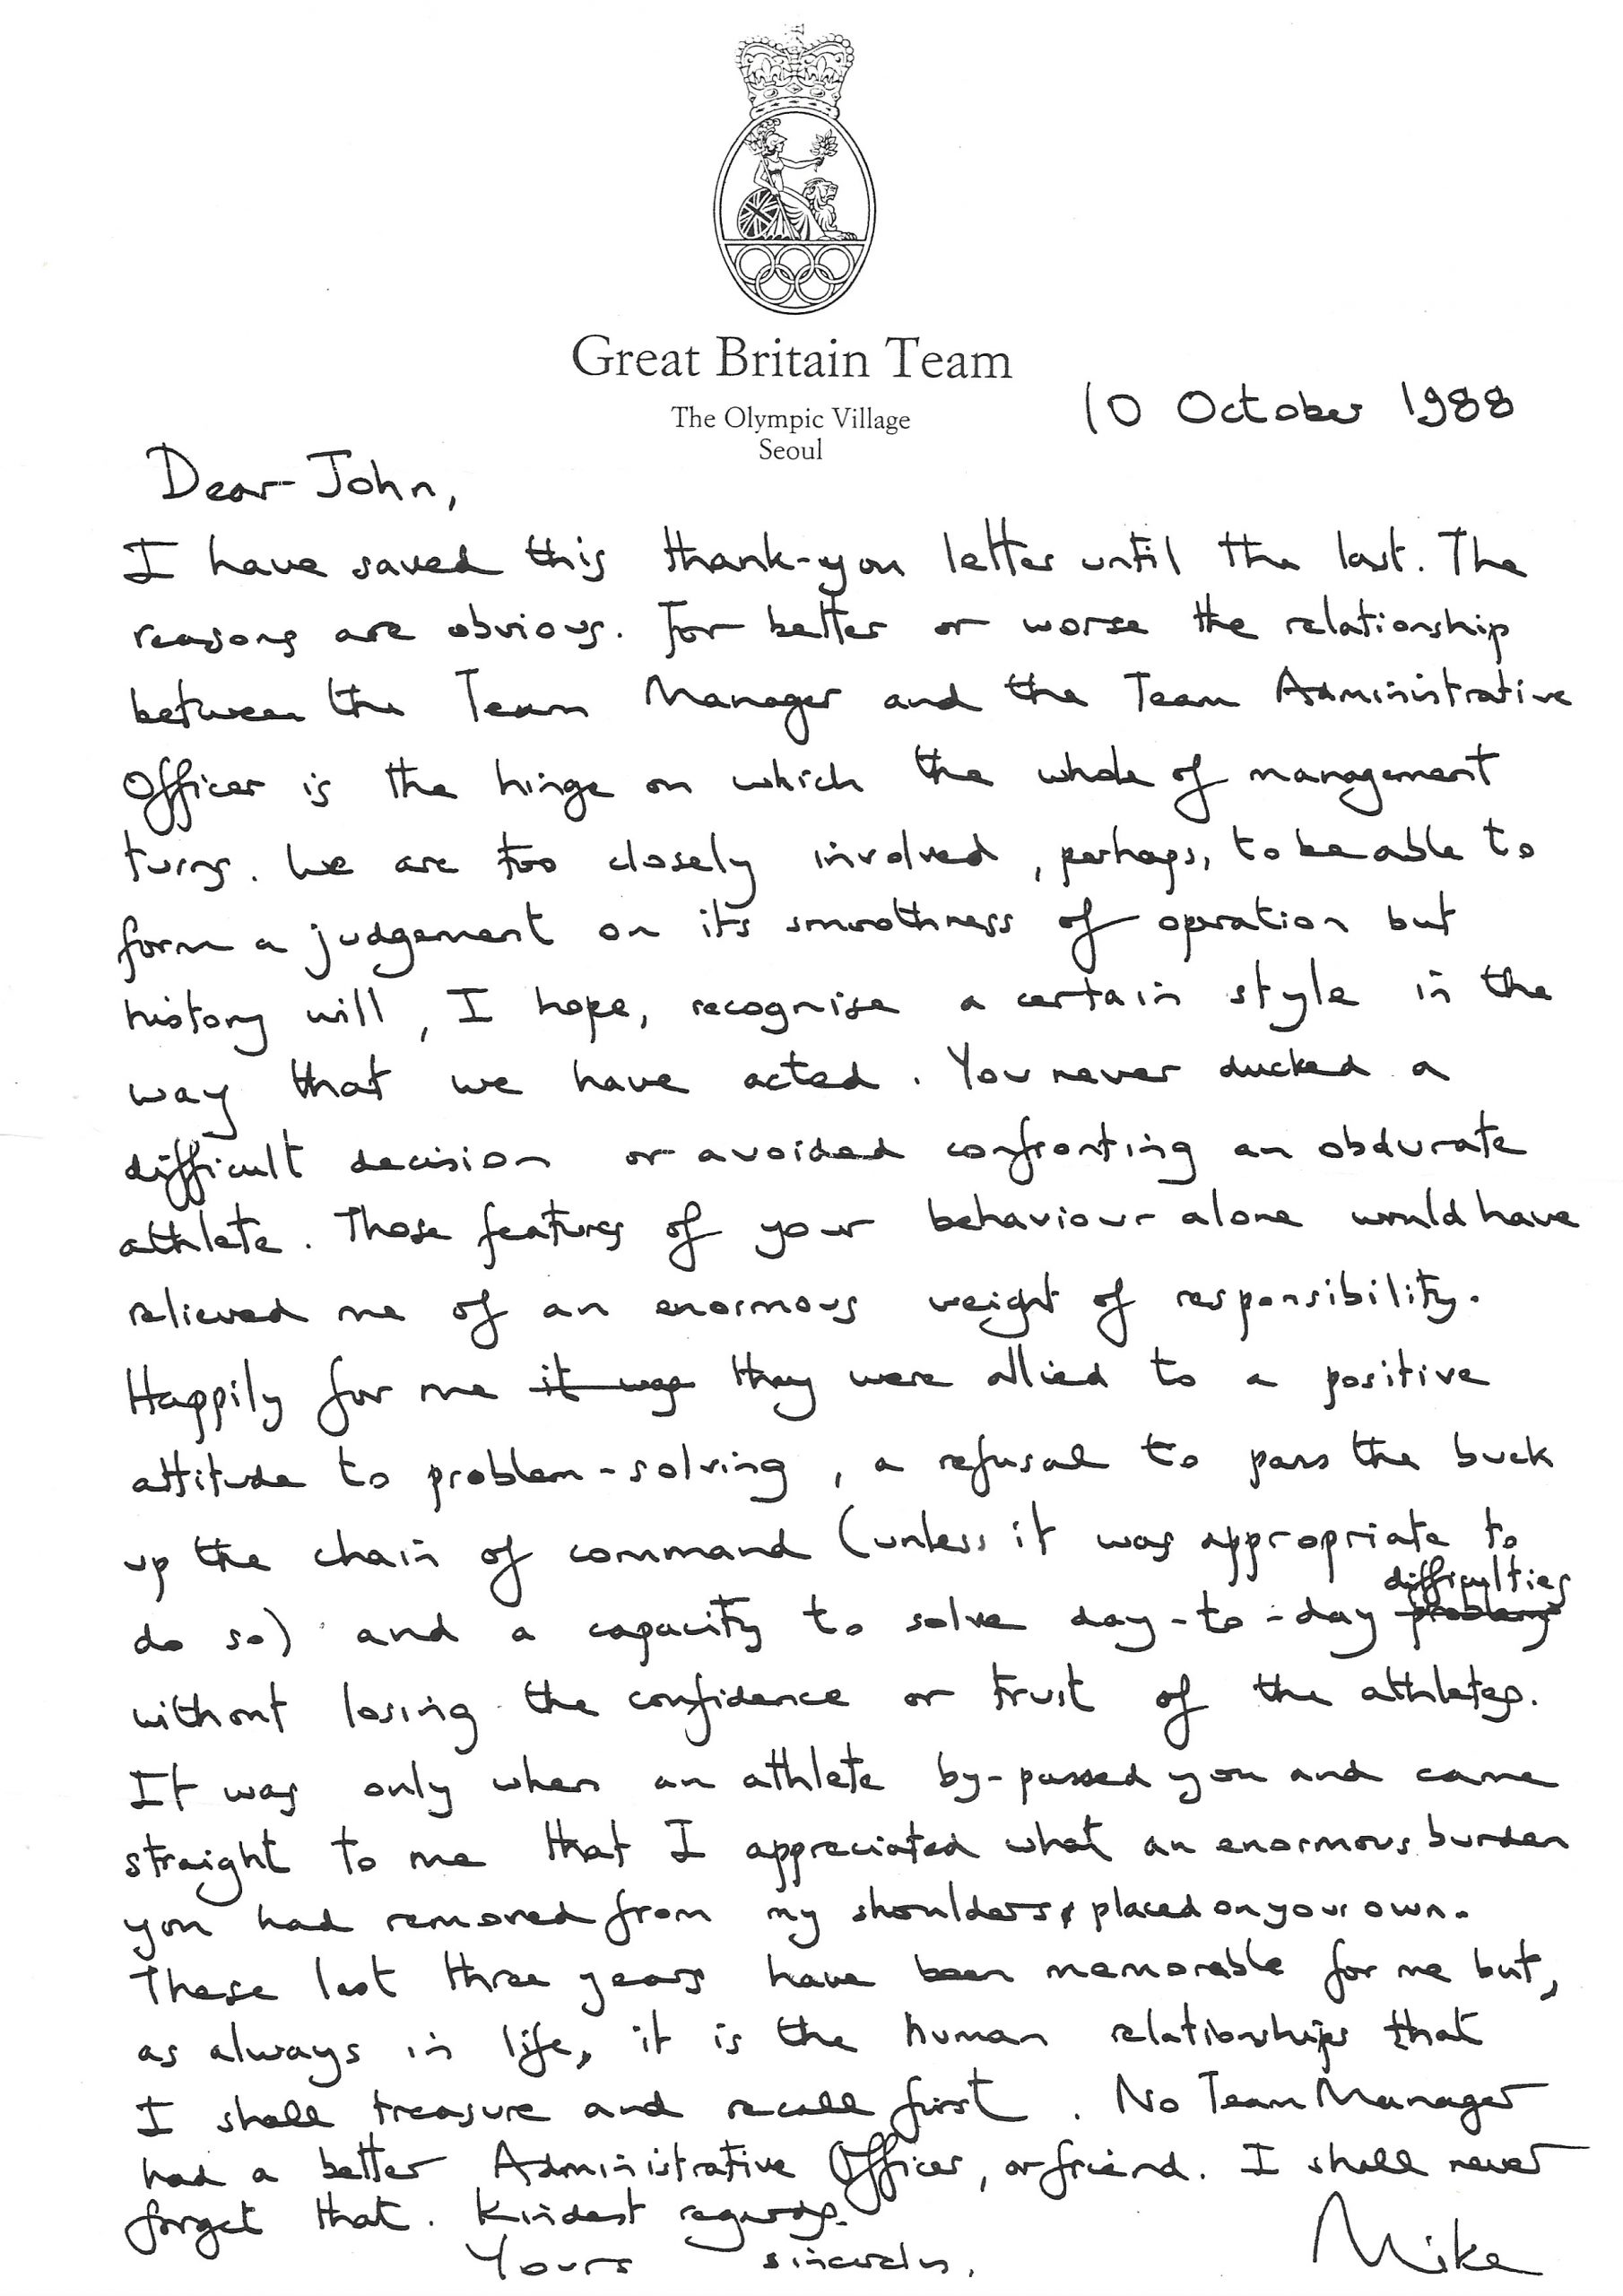 Great Britain Team
The Olympic Village
Seoul
10 October 1988
Dear John,
I have saved this thank-you letter until the last. The
reasons are obvious. For better or worse the relationship
between the Team Manager and the Team Administrative
Officer is the hinge on which the whole of management
turns. We are too closely involved, perhaps, to be able to
form a judgement on its smoothness of operation but
history will, I hope, recognise a certain style in the
way that we have acted. You never ducked a
difficult decision or avoided confronting an obdurate
athlete. Those features of your behaviour alone would have
relieved me of an enormous weight of responsibility.
Happily for me it was they were allied to a positive
attitude to problem-solving, a refusal to pass the buck
up the chain of command (unless it was appropriate to
difficulties
do so) and a capacity to solve day-to-day problems
without losing the confidence or trust of the athletes.
It was only when an athlete by-passed you and came
straight to me that I appreciated what an enormous burden
you had removed from my shoulders & placed on your own.
These last three years have been memorable for me but,
as always in life, it is the human relationships that
I shall treasure and recall first. No Team Manager
had a better Administrative Officer, or friend. I shall never
forget that. Kindest regards.
Yours sincerely,
Mike